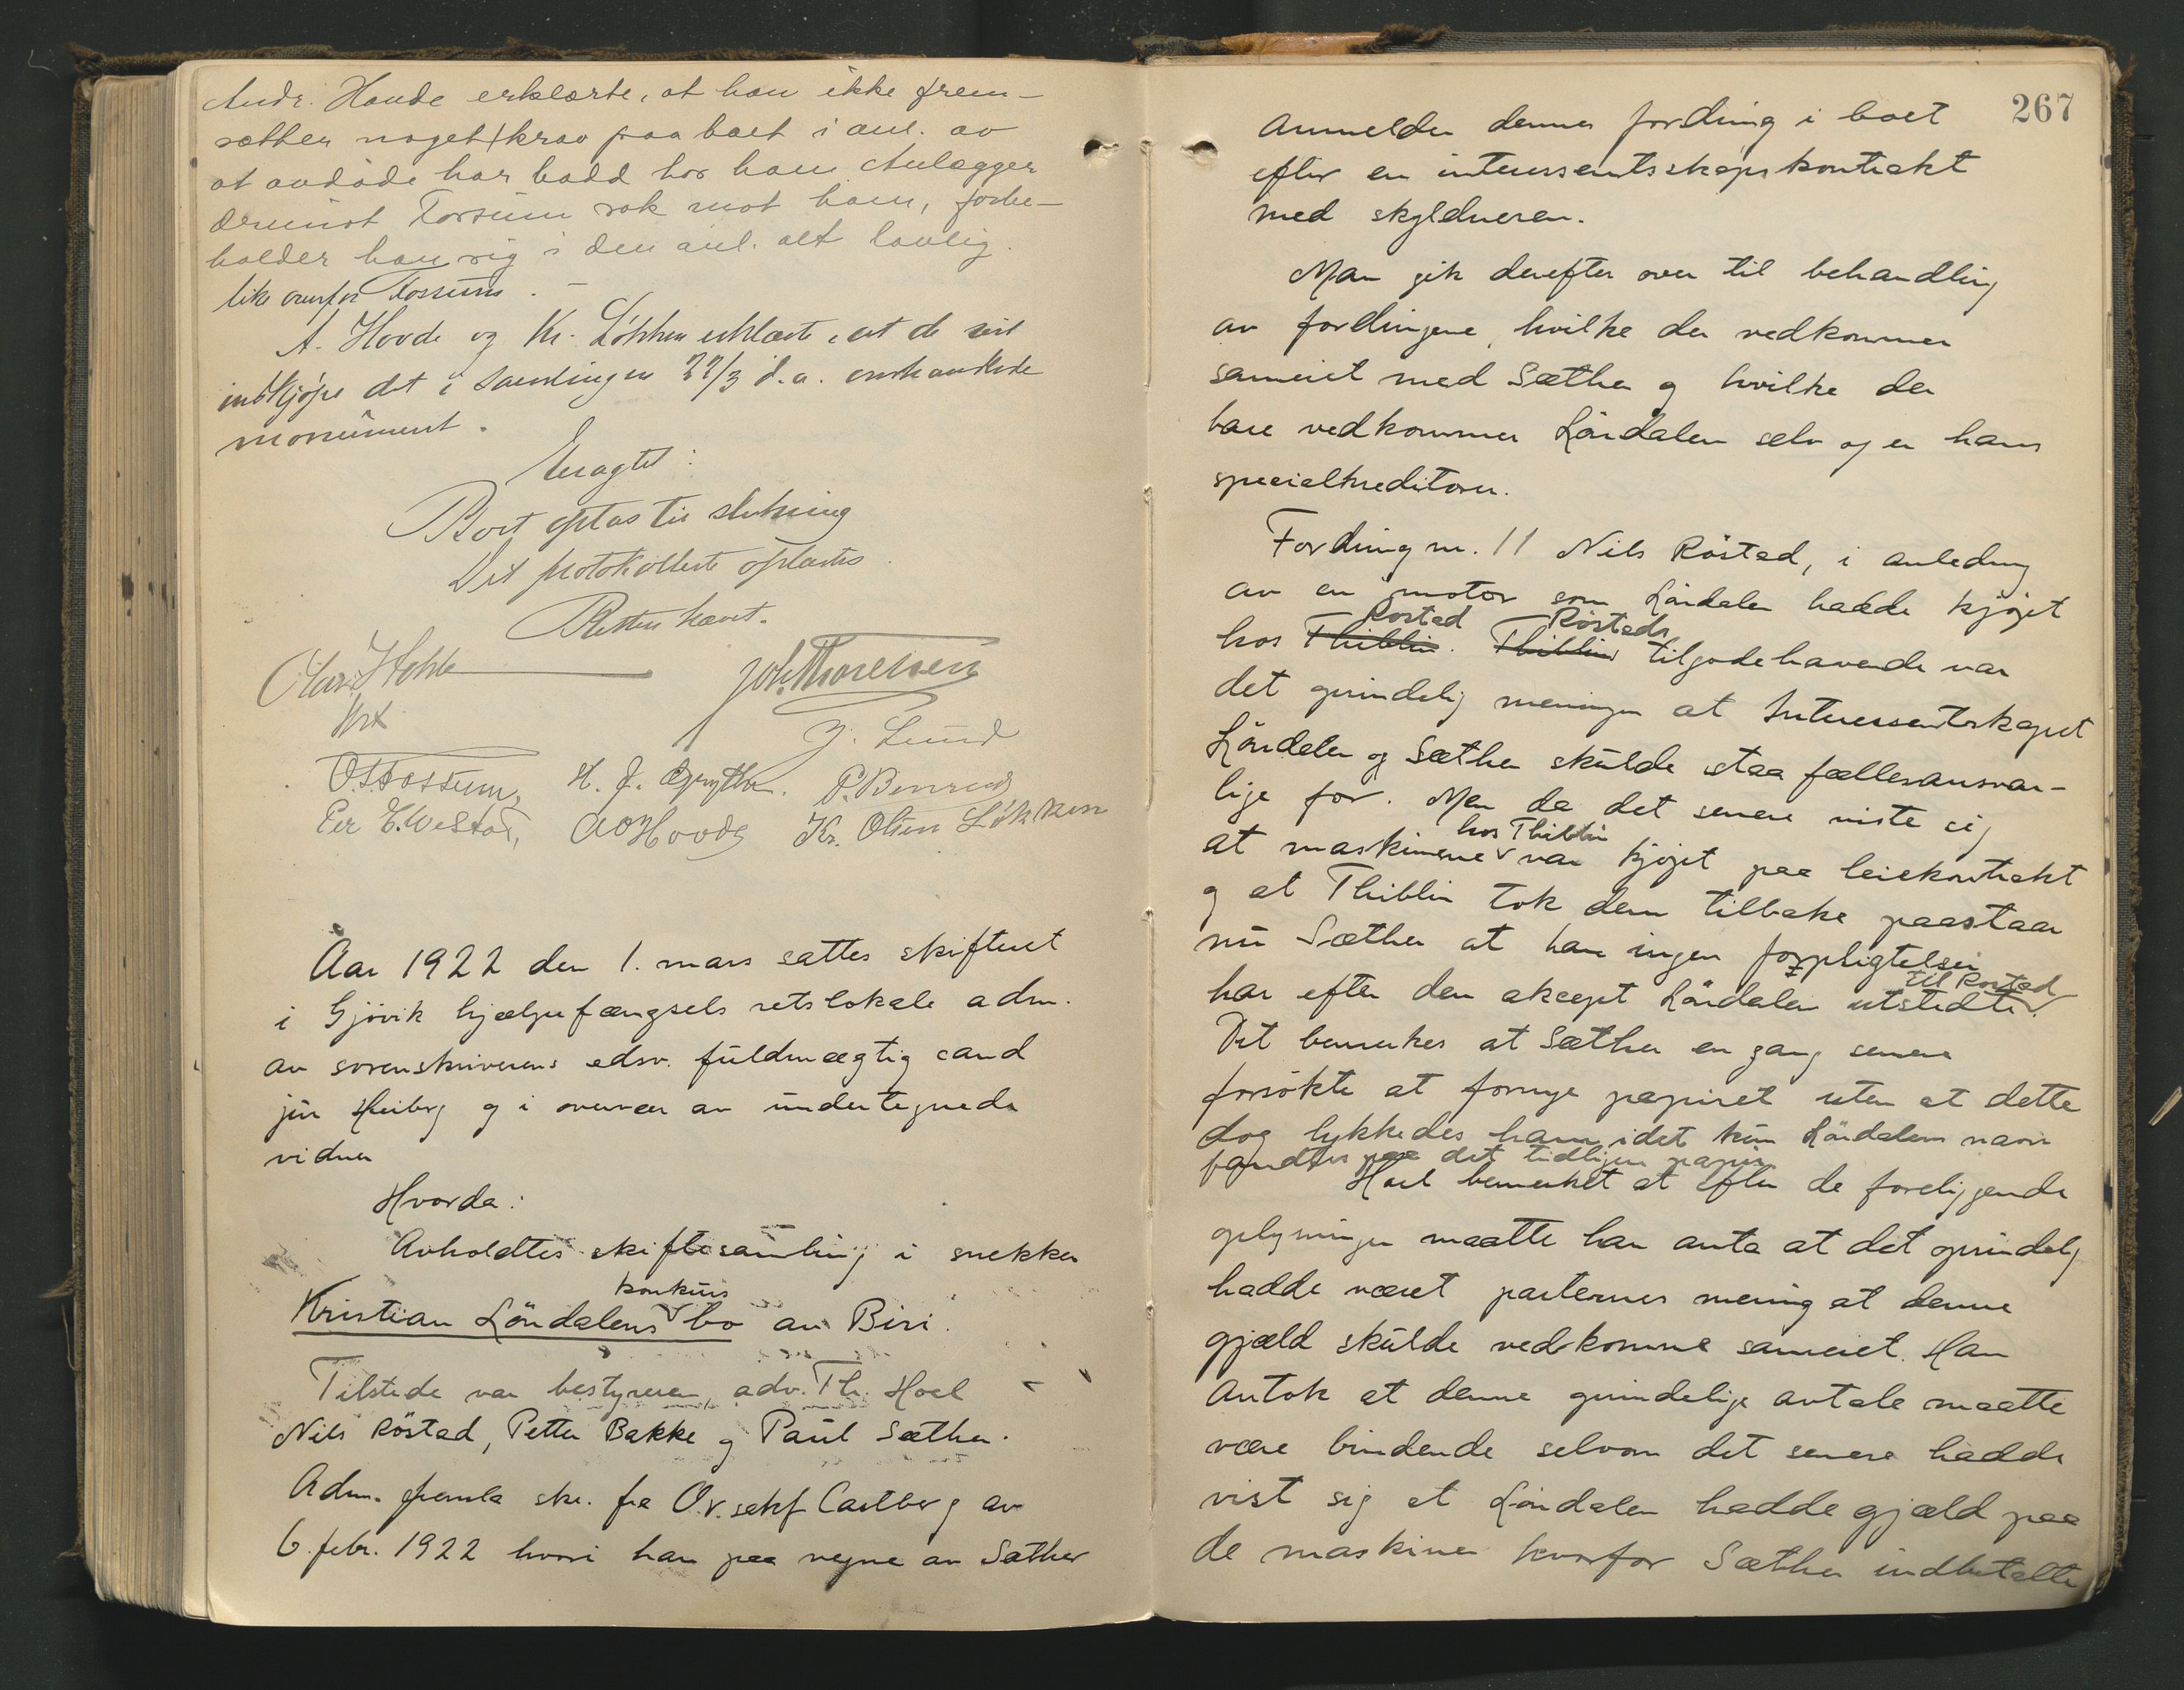 Andr. Hovde erklærte, at han ikke frem-
sætter noget krav paa boet i anl. av
at avdøde har bodd hos ham. Anlægger
derimot Fossum sak mot ham, forbe-
holder han sig i den anl. alt lovlig
like overfor Fossum. –
A. Hovde og Kr. Løkken erklærte, at de vil
indkjøpe det i samlingen 22/3 d.a. omhandlede
monument.
Eragtet:
Boet optas til slutning
Det protokollerte oplæstes
Retten hævet.
Joh. Thoresen
J. Lund
O. Fossum, H. J. P.
Per E. Westad, A O Hovde Kr. Olsen Løkken
Aar 1922 den 1. mars sattes skifteret
i Gjøvik hjælpefængsels retslokale adm.
av sorenskriverens edsv. fuldmægtig cand
jur Heiberg og i overvær av undertegnede
vidner
Hvorda:
Avholdtes skiftesamling i snekker
Kristian Löndalens konkurs bo av Biri.
Tilstede var bestyreren, adv. Th. Hoel
Nils Röstad, Petter Bakke og Paul Sæther.
Adm. fremla skr. fra O.r.sakf Castberg av
6. febr. 1922 hvori han paa vegne av Sæther
267
Anmelder dennes fordring i boet
efter en interessentskapskontrakt
med skyldneren.
Man gik derefter over til behandling
av fordringene, hvilke der vedkommer
sameiet med Sæther og hvilke der
bare vedkommer Löndalen selv og er hans
specialkreditorer.
Fordring nr. 11 Nils Röstad, i anledning
av en motor som Löndalen hadde kjøpet
Röstad Röstads
hos Thiblin. Thiblins tilgodehavende var
det oprindelig meningen at Interessentskapet
Löndalen og Sæther skulde staa fællesansvar-
lige for. Men da det senere viste sig
hos Thiblin
at maskinene var kjøpt paa leiekontrakt
og at Thiblin tok dem tilbake paastaar
nu Sæther at han ingen forpligtelser
til Röstad
har efter den aksept Löndalen utstedte.
Det bemerkes at Sæther en gang senere
forsøkte at fornye papiret uten at dette
dog lykkedes ham, idet kun Löndalens navn
fandtes paa det tidligere papir.
Hoel bemerket at efter de foreliggende
oplysninger maatte han anta at det oprindelig
hadde været parternes mening at denne
gjæld skulde vedkomme sameiet. Han
Antok at denne oprindelige avtale maatte
være bindende selvom det senere hadde
vist sig at Löndalen hadde gjæld paa
de maskiner hvorfor Sæther indbetalte